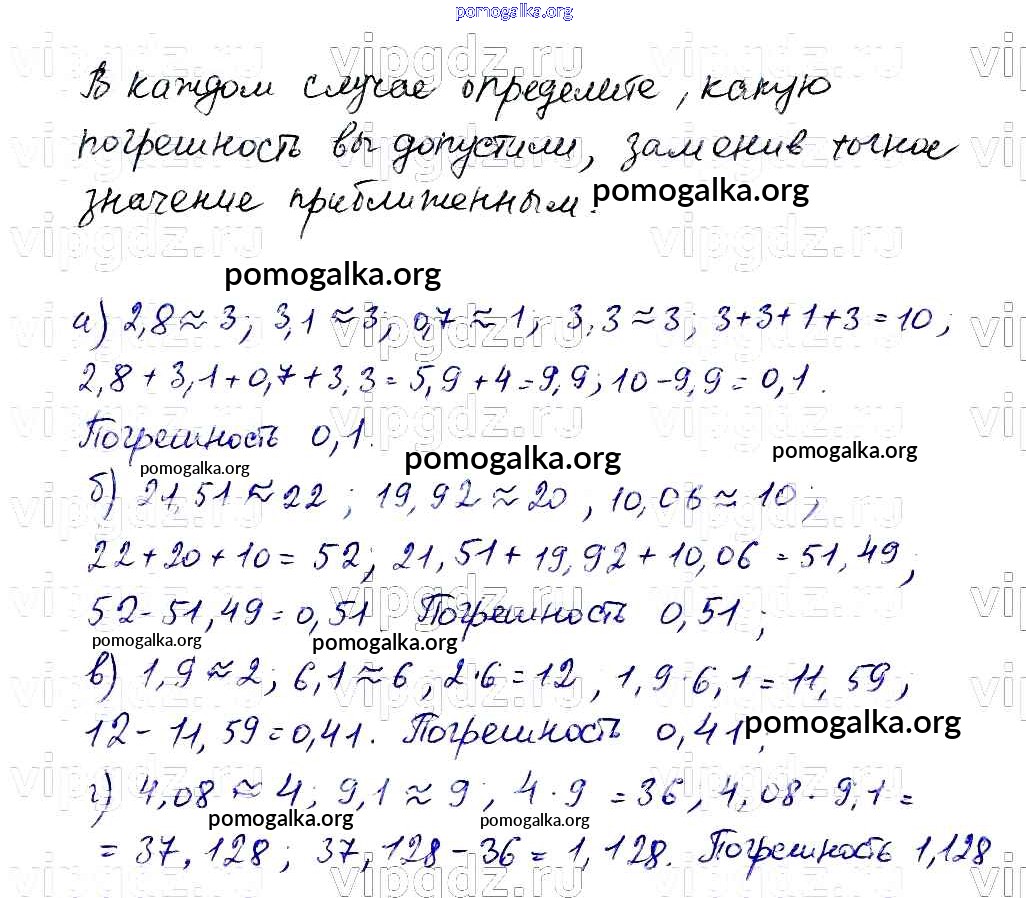 pomogalka.org
В каждом случае определите, какую
погрешность вы допустили, заменив точное
значение приближенным.
pomogalka.org
pomogalka.org
а) 2,8 ≈ 3; 3,1 ≈ 3; 0,7 ≈ 1; 3,3 ≈ 3; 3+3+1+3 = 10;
2,8 + 3,1 + 0,7 + 3,3 = 5,9 + 4 = 9,9; 10 - 9,9 = 0,1.
Погрешность 0,1.
pomogalka.org
pomogalka.org
pomogalka.org
б) 21,51 ≈ 22; 19,92 ≈ 20, 10,06 ≈ 10;
22 + 20 + 10 = 52; 21,51 + 19,92 + 10,06 = 51,49;
52 - 51,49 = 0,51. Погрешность 0,51;
pomogalka.org
pomogalka.org
в) 1,9 ≈ 2; 6,1 ≈ 6, 2·6 = 12, 1,9·6,1 = 11,59,
12 - 11,59 = 0,41. Погрешность 0,41;
pomogalka.org
г) 4,08 ≈ 4; 9,1 ≈ 9, 4·9 = 36, 4,08·9,1 =
pomogalka.org
pomogalka.org
= 37,128; 37,128 - 36 = 1,128. Погрешность 1,128
vipgdz.ru